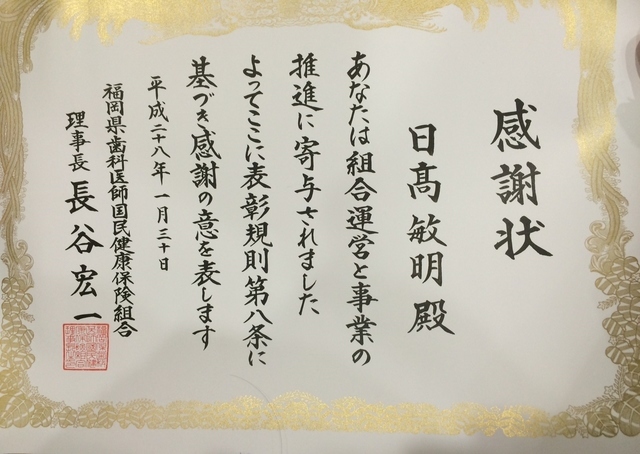 感謝状
日髙敏明殿
あなたは組合運営と事業の
推進に寄与されました
よってここに表彰規則第八条に
基づき感謝の意を表します
平成二十八年一月三十日
福岡県歯科医師国民健康保険組合
理事長 長谷宏一